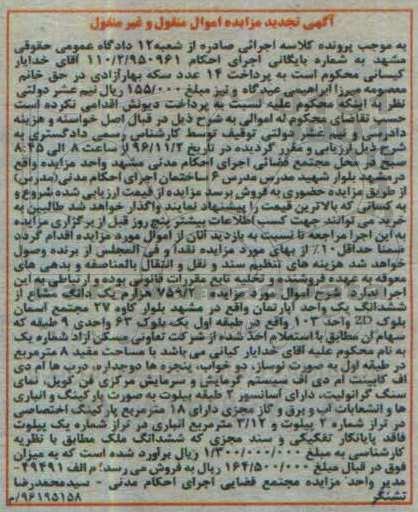 آگهی تجدید مزایده اموال منقول و غیر منقول
به موجب پرونده کلاسه اجرائی صادره از شعبه ۱۲ دادگاه عمومی حقوقی
مشهد به شماره بایگانی اجرای احکام ۱۱۰/۲/۹۵۰۹۶۱ آقای خدایار
کیسانی محکوم است به پرداخت ۱۴ عدد سکه بهارآزادی در حق خانم
معصومه میرزا ابراهیمی عیدگاه و نیز مبلغ ۱۵۵/۰۰۰ ریال نیم عشر دولتی
نظر به اینکه محکوم علیه نسبت به پرداخت دیونش اقدامی نکرده است
حسب تقاضای محکوم له اموالی به شرح ذیل در قبال اصل خواسته و هزینه
دادرسی و نیم عشر دولتی توقیف توسط کارشناس رسمی دادگستری به
شرح ذیل ارزیابی و مقرر گردیده در تاریخ ۹۶/۱۱/۲ از ساعت ۸ الی ۸:۴۵
صبح در محل مجتمع قضائی اجرای احکام مدنی مشهد واحد مزایده واقع
در مشهد بلوار شهید مدرس مدرس ۶ ساختمان اجرای احکام مدنی (مدرس)
از طریق مزایده حضوری به فروش برسد مزایده از قیمت ارزیابی شده شروع و
به کسانی که بالاترین قیمت را پیشنهاد نمایند واگذار خواهد شد طالبین به
خرید می توانند جهت کسب اطلاعات بیشتر پنج روز قبل از برگزاری مزایده
به این اجرا مراجعه تا نسبت به بازدید آنان از اموال مورد مزایده اقدام گردد
ضمنا حداقل ۱۰٪ از بهای مورد مزایده نقدا و فی المجلس از برنده وصول
خواهد شد هزینه های تنظیم سند و نقل و انتقال بالمناصفه و بدهی های
معوقه به عهده فروشنده و تخلیه تابع مقررات قانونی بوده و ارتباطی به این
اجرا ندارد. شرح اموال مورد مزایده : ۷۵۹/۲ هزارم یک دانگ مشاع از
ششدانگ یک واحد آپارتمان واقع در مشهد بلوار کاوه ۲۷ مجتمع آسمان
بلوک 2D واحد ۱۰۳ واقع در طبقه اول یک بلوک ۶۳ واحدی ۹ طبقه که
سهام آن مطابق با استعلام اخذ شده از شرکت تعاونی مسکن آزاد شماره یک
به نام محکوم علیه آقای خدایار کیانی می باشد با مساحت مفید ۸ مترمربع
در طبقه اول به صورت نوساز، دو خواب، پنجره ها دوجداره، درب ها ام دی
اف کابینت ام دی اف سیستم گرمایش و سرمایش مرکزی فن کویل، نمای
سنگ گرانولیت، دارای آسانسور ۲ طبقه پیلوت به صورت پارکینگ و انباری
ها و انشعابات آب و برق و گاز مجزی دارای ۱۸ مترمربع پارکینگ اختصاصی
در تراز شماره ۲ پیلوت و ۳/۱۲ مترمربع انباری در تراز شماره یک پیلوت
فاقد پایانکار تفکیکی و سند مجزی که ششدانگ ملک مطابق با نظریه
کارشناسی به مبلغ ۱/۳۰۰/۰۰۰/۰۰۰ ریال برآورد شده است که به میزان
فوق در قبال مبلغ ۱۶۴/۵۰۰/۰۰۰ ریال به فروش می رسد/ م الف ۴۹۴۹۱
مدیر واحد مزایده مجتمع قضایی اجرای احکام مدنی - سیدمحمدرضا
تشتگر ۹۶۱۹۵۱۵۸/م